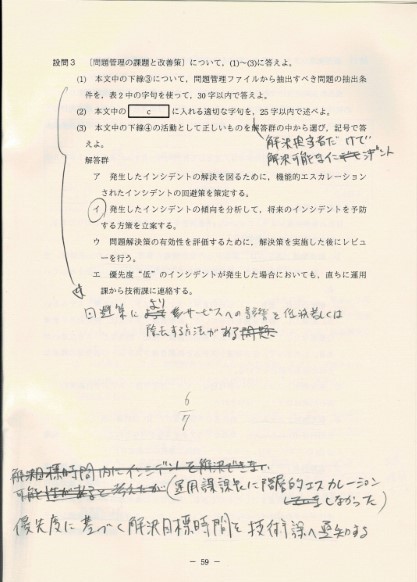 設問3 〔問題管理の課題と改善策〕について,(1)~(3)に答えよ。
(1) 本文中の下線③について,問題管理ファイルから抽出すべき問題の抽出条
件を,表2中の字句を使って,30字以内で答えよ。
(2) 本文中の c に入れる適切な字句を,25字以内で述べよ。
(3) 本文中の下線④の活動として正しいものを解答群の中から選び,記号で答
えよ。
解決担当者だけで
解決可能なインシデント
解答群
ア 発生したインシデントの解決を図るために,機能的エスカレーション
されたインシデントの回避策を策定する。
イ 発生したインシデントの傾向を分析して,将来のインシデントを予防
する方策を立案する。
ウ 問題解決策の有効性を評価するために,解決策を実施した後にレビュ
ーを行う。
エ 優先度“低”のインシデントが発生した場合においても,直ちに運用
課から技術課に連絡する。
回避策により サービスへの影響を低減若しくは
除去する方法がある問題
6
7
解決目標時間内にインシデントを解決できない
可能性があると考えたが(運用課課長に階層的エスカレーション
しなかった)
優先度に基づく解決目標時間を技術課へ通知する
- 59 -